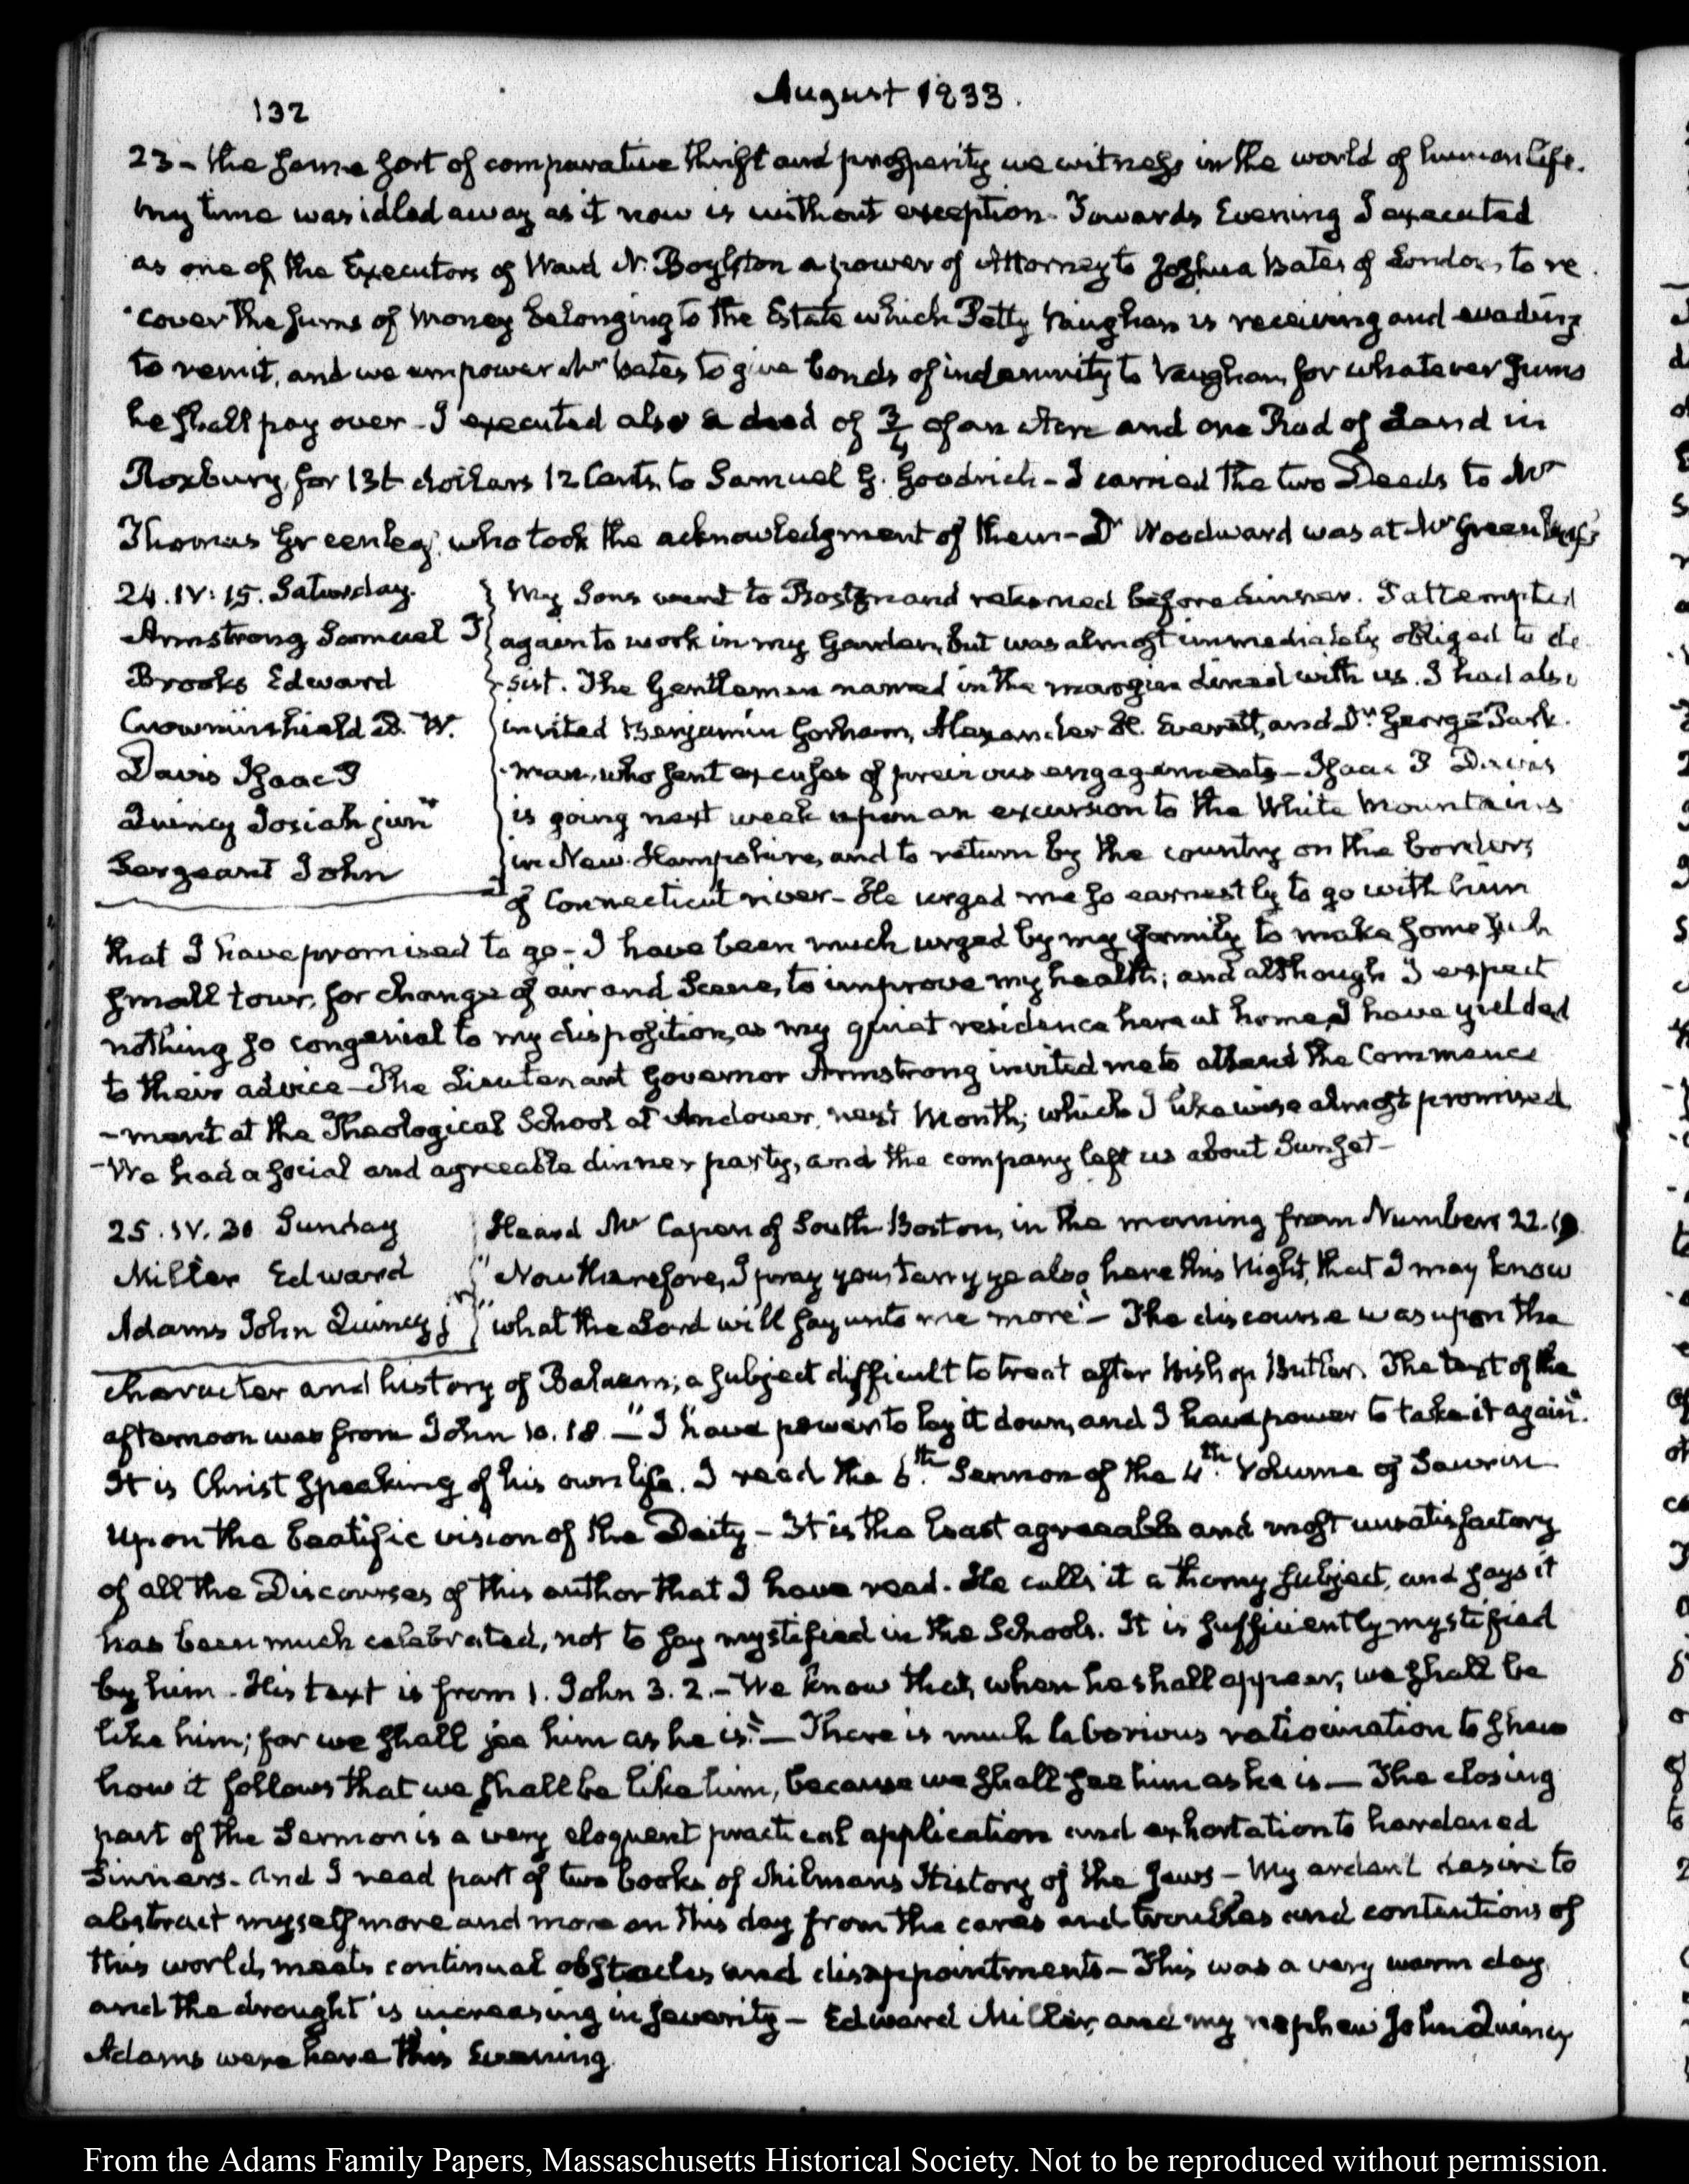 132
August 1833.
23 - the same sort of comparative thrift and prosperity we witness in the world of human life.
My time was idled away as it now is without exception. Towards Evening I executed
as one of the Executors of Ward N. Boylston a power of Attorney to Joshua Bates of London, to re
-cover the sums of Money belonging to the Estate which Petty Vaughan is receiving and evading
to remit, and we empower Mr Bates to give bonds of indemnity to Vaughan, for whatever sums
he shall pay over - I executed also a deed of 3/4 of an Acre and one Rod of Land in
Roxbury, for dollars 12 Cents, to Samuel G. Goodrich - I carried the two Deeds to Mr
Thomas Greenleaf, who took the acknowledgment of them - Dr Woodward was at Mr Greenleaf's
24. IV: 15. Saturday.
Armstrong Samuel T
Brooks Edward
Crowninshield B. W.
Davis Isaac P
Quincy Josiah junr
Sergeant John
My Sons went to Boston and returned before dinner. I attempted
again to work in my Garden, but was almost immediately obliged to de
-sist. The Gentlemen named in the margin dined with us. I had also
invited Benjamin Gorham, Alexander H. Everett, and Dr. George Park-
-man, who sent excuses of previous engagements - Isaac P Davis
is going next week upon an excursion to the White Mountains
in New-Hampshire, and to return by the country on the borders
of Connecticut river - He urged me so earnestly to go with him
that I have promised to go - I have been much urged by my family to make some such
small tour, for change of air and Scene, to improve my health; and although I expect
nothing so congenial to my disposition, as my quiet residence here at home, I have yielded
to their advice - The Lieutenant Governor Armstrong invited me to attend the Commence
-ment at the Theological School at Andover, next Month; which I likewise almost promised
-We had a social and agreeable dinner party, and the company left us about Sunset -
25. IV. 30 Sunday
Miller Edward
Adams John Quincy jr
Heard Mr Capen of South-Boston, in the morning from Numbers 22. 19
"Now therefore, I pray you tarry ye also here this Night, that I may know
"what the Lord will say unto me more" - The discourse was upon the
character and history of Balaam; a subject difficult to treat after Bishop Butler. The text of the
afternoon was from John 10. 18 - "I have power to lay it down, and I have power to take it again".
It is Christ speaking of his own life. I read the 6th. Sermon of the 4th. Volume of Saurin
upon the beatific vision of the Deity - It is the least agreeable and most unsatisfactory
of all the Discourses of this author that I have read. He calls it a thorny subject, and says it
has been much celebrated, not to say mystified in the Schools. It is sufficiently mystified
by him - His text is from 1. John 3. 2. - We know that, when he shall appear, we shall be
like him; for we shall see him as he is." - There is much laborious ratiocination to shew
how it follows that we shall be like him, because we shall see him as he is - The closing
part of the Sermon is a very eloquent practical application and exhortation to hardened
Sinners - And I read part of two books of Milmans History of the Jews - My ardent desire to
abstract myself more and more on this day from the cares and troubles and contentions of
this world, meets continual obstacles and disappointments - This was a very warm day
and the drought is increasing in severity - Edward Miller, and my nephew John Quincy
Adams were here this Evening.
From the Adams Family Papers, Massachusetts Historical Society. Not to be reproduced without permission.